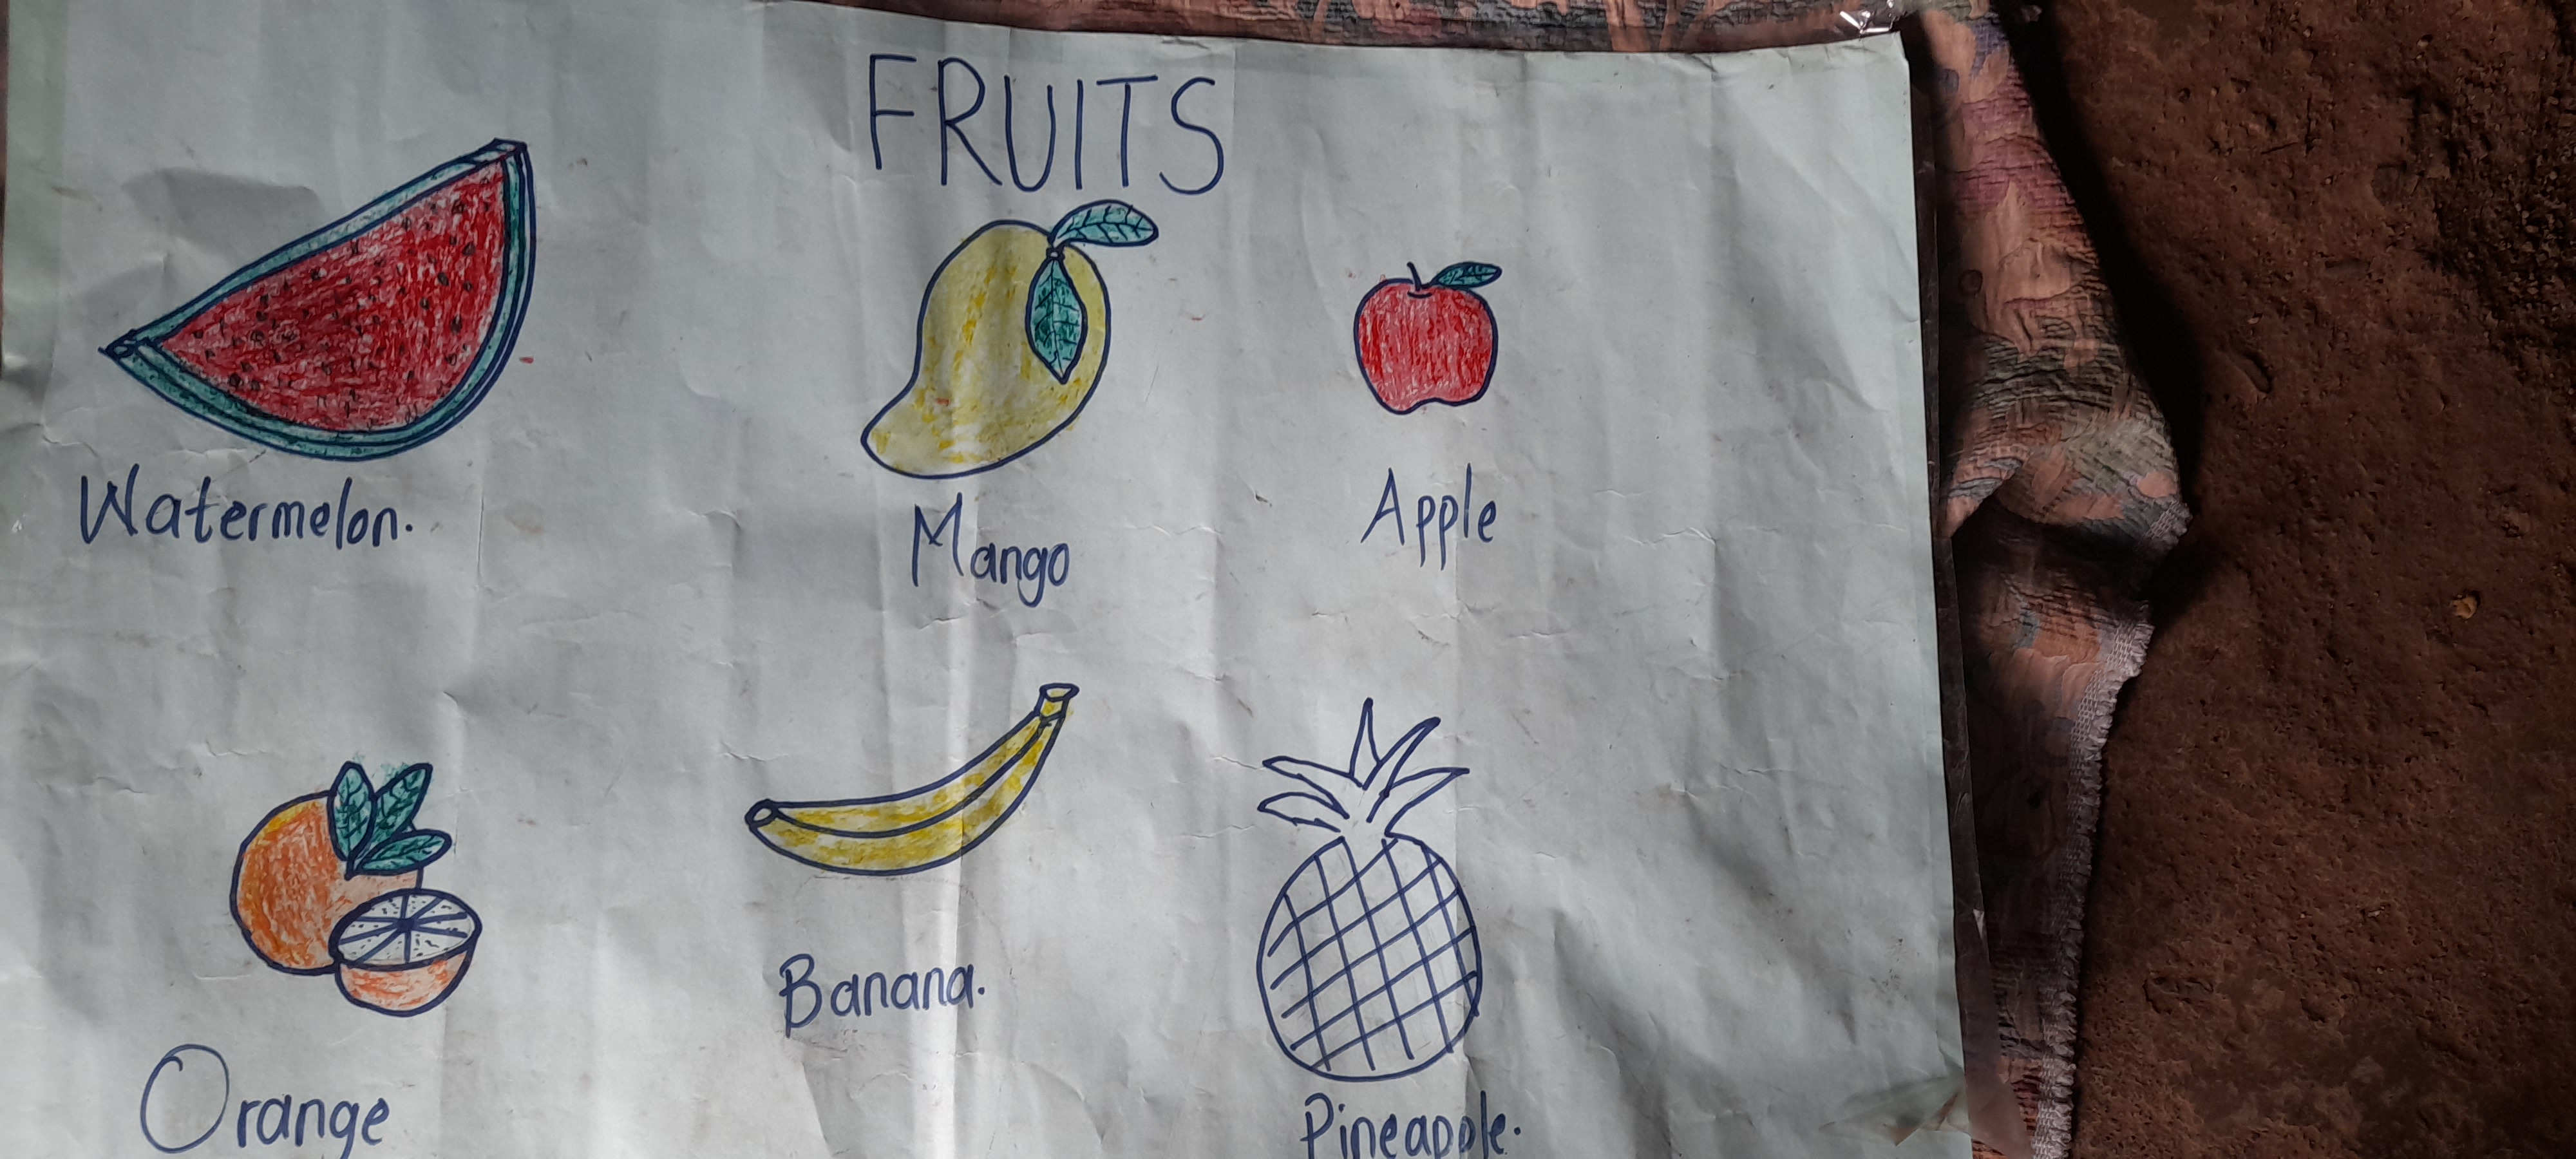 FRUITS
Watermelon.
Mango
Apple
Orange
Banana.
Pineapple.